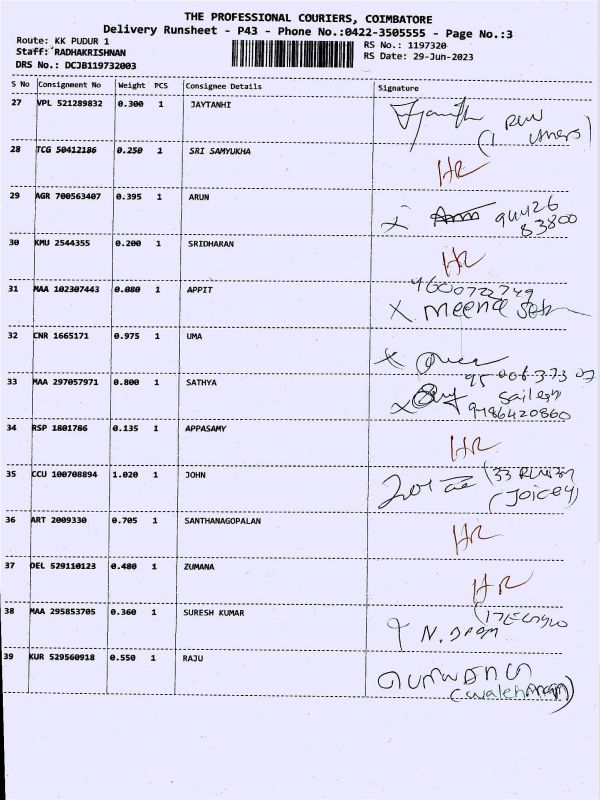 THE PROFESSIONAL COURIERS, COIMBATORE
Delivery Runsheet - P43 - Phone No.:0422-3505555 - Page No.:3
Route: KK PUDUR 1
RS No.: 1197320
Staff: RADHAKRISHNAN
RS Date: 29-Jun-2023
DRS No.: DCJB119732003
S No Consignment No Weight PCS Consignee Details Signature
27 VPL 521289832 0.300 1 JAYTANHI
28 TCG 50412186 0.250 1 SRI SAMYUKHA
HR
29 AGR 700563407 0.395 1 ARUN
83800
30 KMU 2544355 0.200 1 SRIDHARAN
HR
31 MAA 102307443 0.080 1 APPIT
9600722749
X meena
32 CNR 1665171 0.975 1 UMA
X
33 MAA 297057971 0.800 1 SATHYA
X Sailesh
9786420860
34 RSP 1801786 0.135 1 APPASAMY
HR
35 CCU 100708894 1.020 1 JOHN
(Joicey)
36 ART 2009330 0.705 1 SANTHANAGOPALAN
HR
37 DEL 529110123 0.480 1 ZUMANA
HR
38 MAA 295853705 0.360 1 SURESH KUMAR
39 KUR 529560918 0.550 1 RAJU